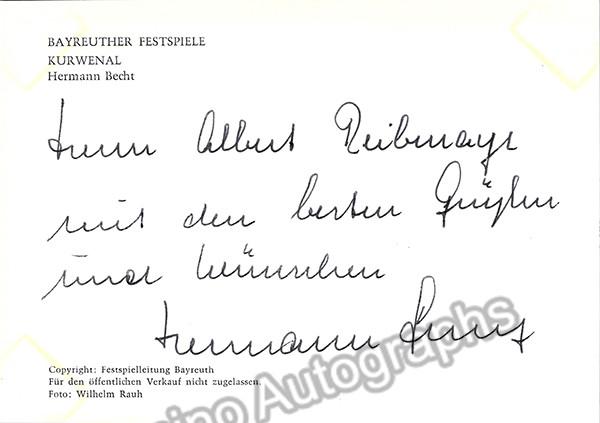 BAYREUTHER FESTSPIELE
KURWENAL
Hermann Becht
Herrn Albert Reibmayr
mit den besten Grüßen
und Wünschen
Hermann Becht
Copyright: Festspielleitung Bayreuth
Für den öffentlichen Verkauf nicht zugelassen.
Foto: Wilhelm Rauh
Autographs